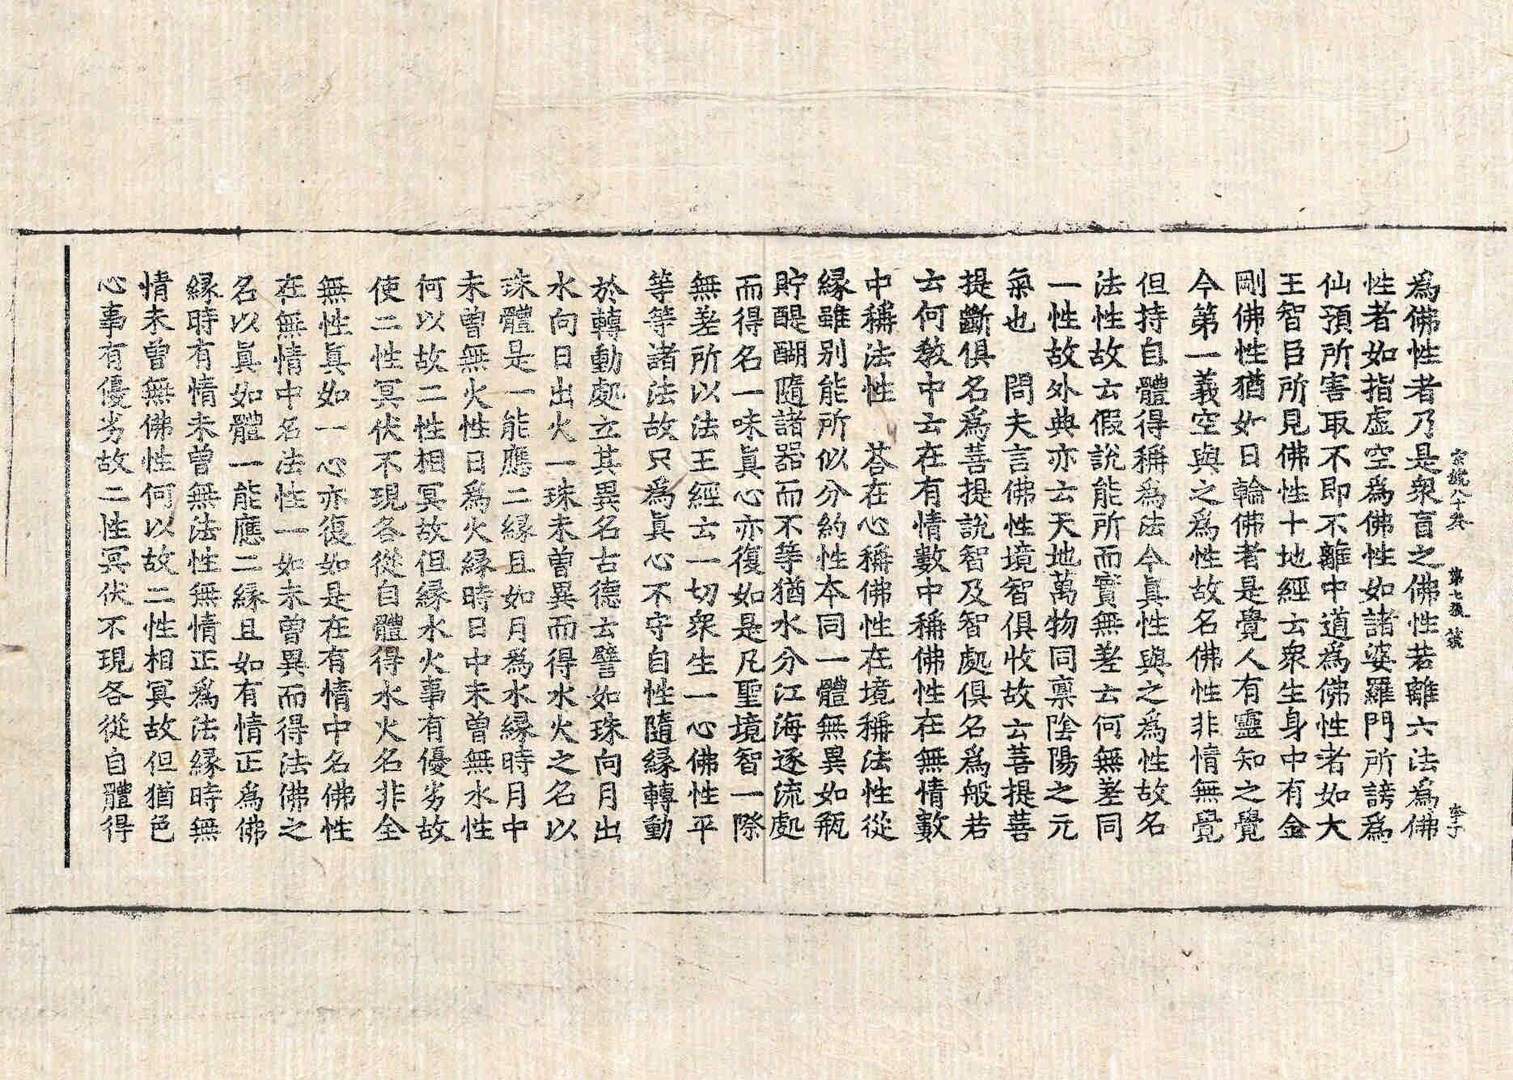 宗鏡八十卷 第七張 號 李子
為佛性者乃是衆盲之佛性若離六法為佛
性者如指虛空為佛性如諸婆羅門所謗為
仙預所害取不即不離中道為佛性者如大
王智臣所見佛性十地經云衆生身中有金
剛佛性猶如日輪佛者是覺人有靈知之覺
今第一義空與之為性故名佛性非情無覺
但持自體得稱為法今真性與之為性故名
法性故云假說能所而實無差云何無差同
一性故外典亦云天地萬物同稟陰陽之元
氣也 問夫言佛性境智俱收故云菩提菩
提斷俱名為菩提說智及智處俱名為般若
云何教中云在有情數中稱佛性在無情數
中稱法性 荅在心稱佛性在境稱法性從
緣雖別能所似分約性本同一體無異如瓶
貯醍醐隨諸器而不等猶水分江海逐流處
而得名一味眞心亦復如是凡聖境智一際
無差所以法王經云一切衆生一心佛性平
等等諸法故只為眞心不守自性隨緣轉動
於轉動處立其異名古德云譬如珠向月出
水向日出火一珠未曾異而得水火之名以
珠體是一能應二緣且如月為水緣時月中
未曾無火性日為火緣時日中未曾無水性
何以故二性相冥故但緣水火事有優劣故
使二性冥伏不現各從自體得水火名非全
無性眞如一心亦復如是在有情中名佛性
在無情中名法性一如未曾異而得法佛之
名以眞如體一能應二緣且如有情正為佛
緣時有情未曾無法性無情正為法緣時無
情未曾無佛性何以故二性相冥故但猶色
心事有優劣故二性冥伏不現各從自體得